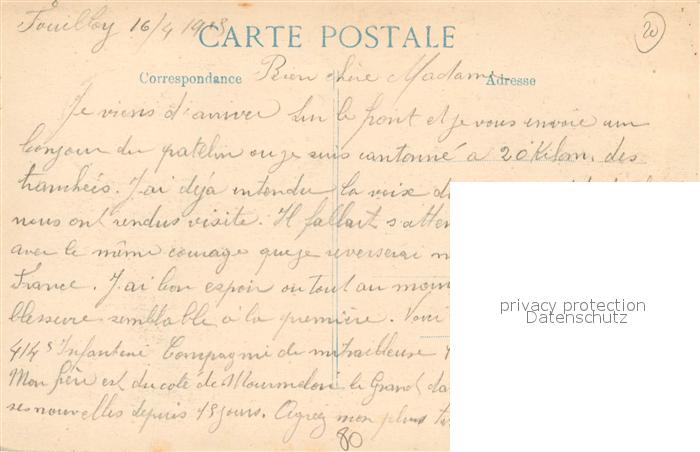 Fouilloy 16/4 1918
20
CARTE POSTALE
Correspondance Bien chère Madame Adresse
Je viens d'arriver sur le front et je vous envoie un
bonjour du patelin ou je suis cantonné à 20 Kilom. des
tranchées. J'ai déjà entendu la voix
nous ont rendus visite. Il fallait
avec le même courage que je verserai
France. J'ai bon espoir ou tout au moins
blessure semblable à la première. Voici
414e Infanterie Compagnie de mitrailleuse
Mon frère est du coté de Mourmelon le Grand
ses nouvelles depuis 15 jours. Agréez mon plus
80
privacy protection
Datenschutz